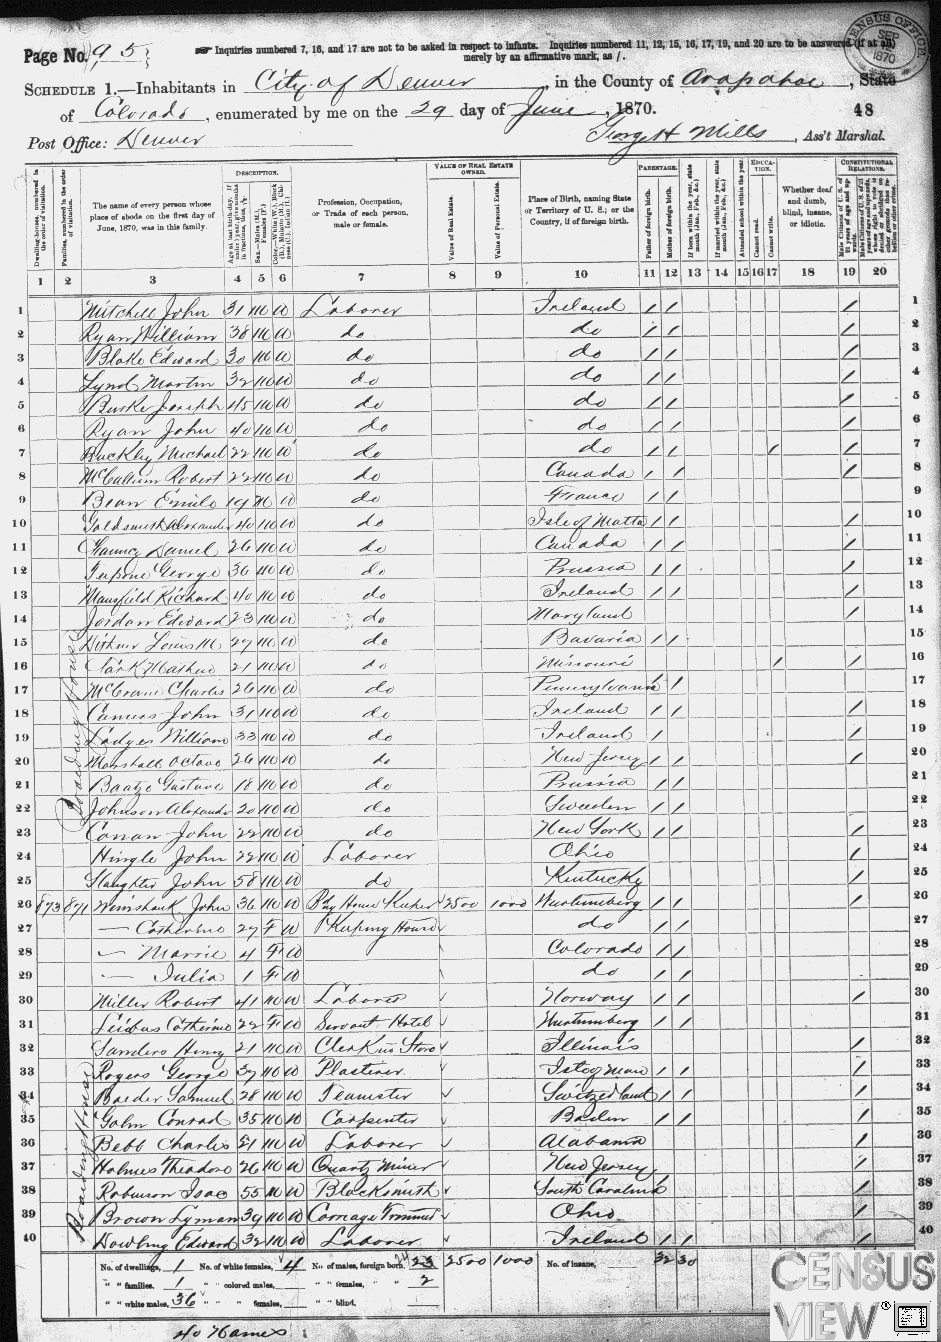 Page No. 95
Inquiries numbered 7, 16, and 17 are not to be asked in respect to infants. Inquiries numbered 11, 12, 15, 16, 17, 19, and 20 are to be answered (if at all)
merely by an affirmative mark, as /.
CENSUS OFFICE SEP 1870
SCHEDULE 1.—Inhabitants in City of Denver, in the County of Arapahoe, State
of Colorado, enumerated by me on the 29 day of June, 1870.
48
Post Office: Denver
George H Mills, Ass't Marshal.
Dwelling-houses, numbered in the order of visitation.
Families, numbered in the order of visitation.
The name of every person whose place of abode on the first day of June, 1870, was in this family.
DESCRIPTION.
Profession, Occupation, or Trade of each person, male or female.
VALUE OF REAL ESTATE OWNED.
Value of Real Estate.
Value of Personal Estate.
Place of Birth, naming State or Territory of U. S.; or the Country, if of foreign birth.
PARENTAGE.
Father of foreign birth.
Mother of foreign birth.
If born within the year, state month (Jan., Feb., &c.)
If married within the year, state month (Jan., Feb., &c.)
EDUCATION.
Attended school within the year.
Cannot read.
Cannot write.
Whether deaf and dumb, blind, insane, or idiotic.
CONSTITUTIONAL RELATIONS.
1 2 3 4 5 6 7 8 9 10 11 12 13 14 15 16 17 18 19 20
1 Mitchell John 31 M W Laborer Ireland / / / 1
2 Ryan William 38 M W do do / / / 2
3 Blake Edward 30 M W do do / / / 3
4 Martin 32 M W do do / / / 4
5 Burke Joseph 45 M W do do / / / 5
6 Ryan John 40 M W do do / / / 6
7 Buckley Michael 22 M W do do / / / / 7
8 McCallum Robert 22 M W do Canada / / / 8
9 Bean Emile 19 M W do France / / 9
10 Goldsmith Alexander 40 M W do Isle of Malta / / / 10
11 Daniel 26 M W do Canada / / / 11
12 George 36 M W do Prussia / / / 12
13 Mansfield Richard 40 M W do Ireland / / / 13
14 Jordan Edward 23 M W do Maryland / 14
15 Louis M 27 M W do Bavaria / / 15
16 21 M W do Missouri / / 16
17 McCrane Charles 26 M W do Pennsylvania / / 17
18 John 31 M W do Ireland / / / 18
19 William 33 M W do Ireland / / / 19
20 Marshall Octave 26 M W do New Jersey / / / 20
21 Gustave 18 M W do Prussia / / 21
22 Johnson Alexander 20 M W do Sweeden / / 22
23 Conan John 22 M W do New York / / / 23
24 Hingle John 22 M W Laborer Ohio / 24
25 Slaughter John 58 M W do Kentucky / 25
26 873 871 John 36 M W Bdg House Keeper 2500 1000 Wurtumberg / / / 26
27 — Catherine 27 F W Keeping House do / / 27
28 — Marrie 4 F W Colorado / / 28
29 — Julia 1 F W do / / 29
30 Miller Robert 41 M W Laborer Norway / / / 30
31 Catherine 22 F W Servant Hotel Wurtumberg / / 31
32 Sanders Henry 21 M W Clerk in Store Illinois / 32
33 Rogers George 37 M W Plasterer Isle of Man / / / 33
34 Baeder Samuel 28 M W Teamster Switzerland / / / 34
35 Gahn Conrad 35 M W Carpenter Baden / / / 35
36 Bebb Charles 21 M W Laborer Alabama / 36
37 Holmes Theodore 26 M W Quartz Miner New Jersey / 37
38 Robinson Isac 55 M W Blacksmith South Carolina / 38
39 Brown Lyman 39 M W Carriage Trimmer Ohio / 39
40 Dowling Edward 32 M W Laborer Ireland / / / 40
Boarding House
Boarding House
No. of dwellings, 1 No. of white females, 4 No. of males, foreign born, 23 2500 1000 No. of insane, 32 30
" " families, 1 " " colored males, " " females, 2
" " white males, 36 " " " females, " " blind,
40 Names
CENSUS
VIEW®